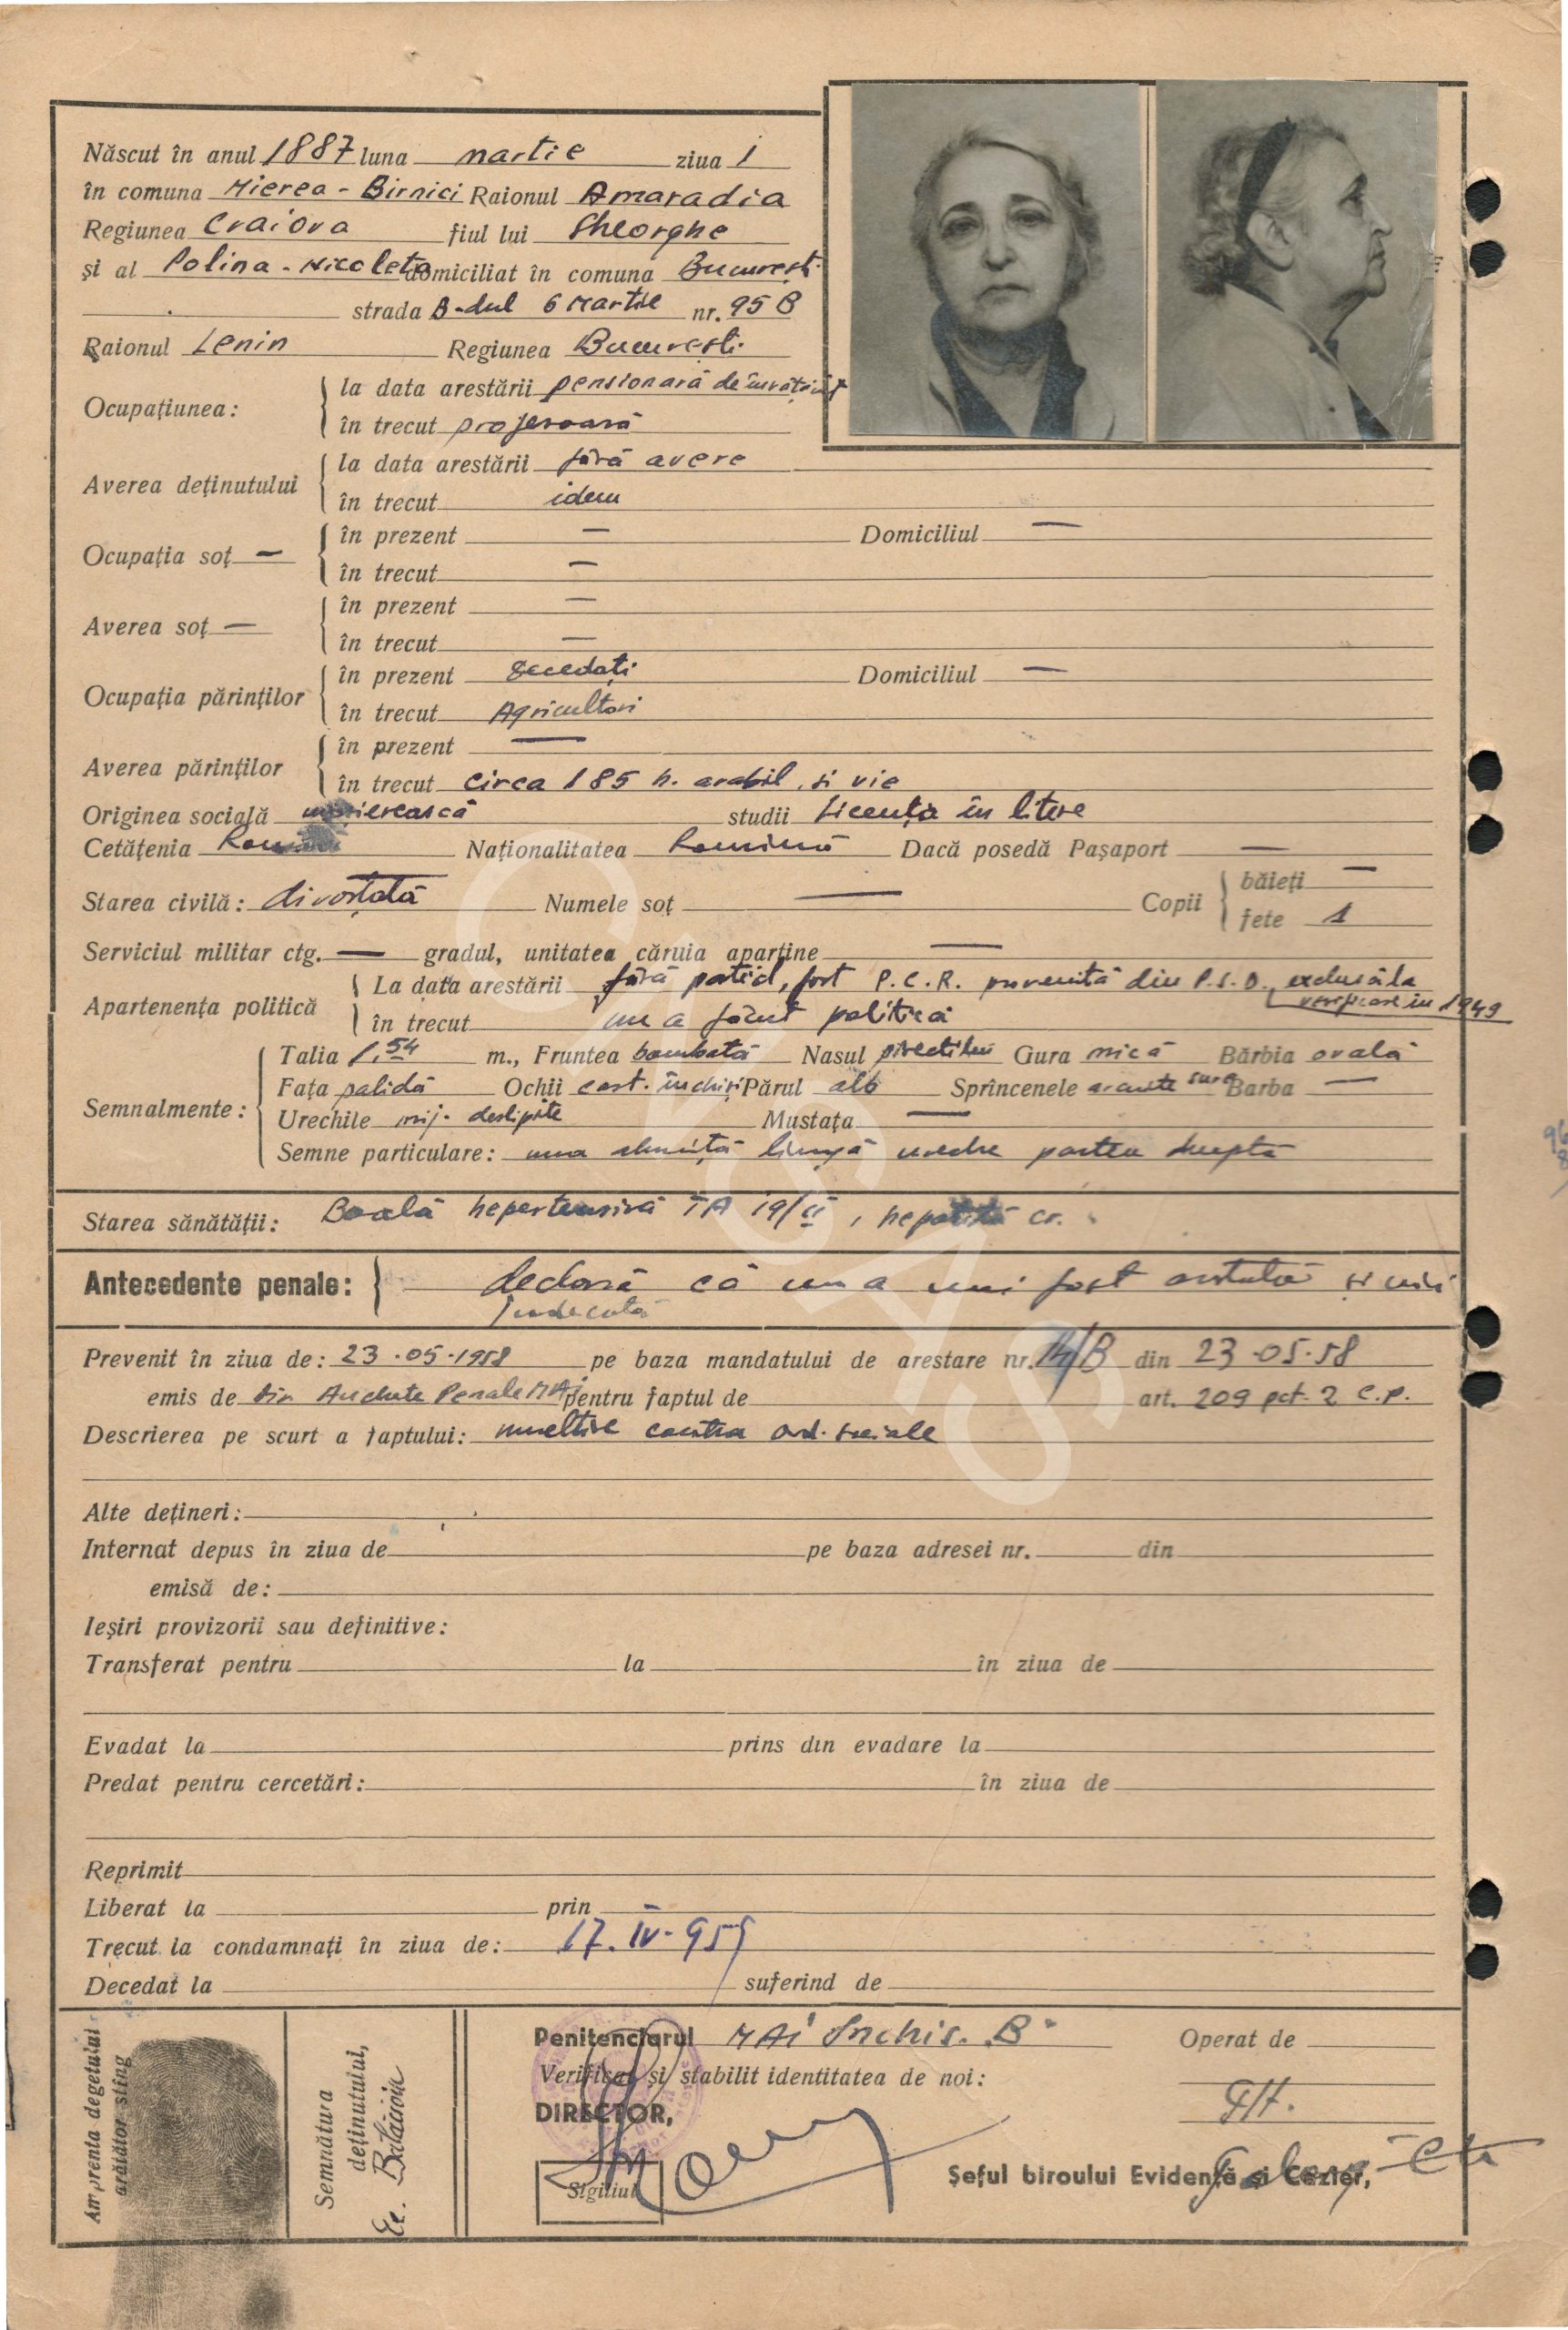 Născut în anul 1887 luna martie ziua 1
în comuna Mierea - Birnici Raionul Amaradia
Regiunea Craiova fiul lui Gheorghe
și al Polina - Nicoleta domiciliat în comuna București
strada B-dul 6 Martie nr. 95 B
Raionul Lenin Regiunea București
Ocupațiunea: la data arestării pensionară de
în trecut profesoară
Averea deținutului la data arestării fără avere
în trecut idem
Ocupația soț — în prezent — Domiciliul —
în trecut —
Averea soț — în prezent —
în trecut —
Ocupația părinților în prezent decedați Domiciliul —
în trecut Agricultori
Averea părinților în prezent —
în trecut circa 185 h. arabil și vie
Originea socială moșierească studii Licența în litere
Cetățenia Romînă Naționalitatea Romînă Dacă posedă Pașaport —
Starea civilă: divorțată Numele soț — Copii băieți —
fete 1
Serviciul militar ctg. — gradul, unitatea căruia aparține —
Apartenența politică La data arestării fără partid, fost P.C.R. provenită din P.S.D. exclusă la
verificare în 1949
în trecut nu a făcut politică
Semnalmente: Talia 1,54 m., Fruntea bombată Nasul rectiliniu Gura mică Bărbia ovală
Fața palidă Ochii cast. închiși Părul alb Sprîncenele arcuite sure Barba —
Urechile mij. deslipite Mustața —
Semne particulare: una aluniță lîngă ureche partea dreaptă
Starea sănătății: Boală hipertensivă TA 19/11, hepatită cr.
Antecedente penale: declară că nu a mai fost arestată și nici
judecată
Prevenit în ziua de: 23-05-1958 pe baza mandatului de arestare nr. 14/B din 23-05-58
emis de Dir. Anchete Penale MAI pentru faptul de art. 209 pct. 2 c.p.
Descrierea pe scurt a faptului: uneltire contra ord. sociale
Alte dețineri:
Internat depus în ziua de pe baza adresei nr. din
emisă de:
Ieșiri provizorii sau definitive:
Transferat pentru la în ziua de
Evadat la prins din evadare la
Predat pentru cercetări: în ziua de
Reprimit
Liberat la prin
Trecut la condamnați în ziua de: 17.IV-959
Decedat la suferind de
Amprenta degetului arătător stîng
Semnătura deținutului,
Ec. Bălăcioiu
Penitenciarul MAI Închis. B Operat de
Verificat și stabilit identitatea de noi:
DIRECTOR,
Sigiliul
Șeful biroului Evidență și Cazier,
CNSAS